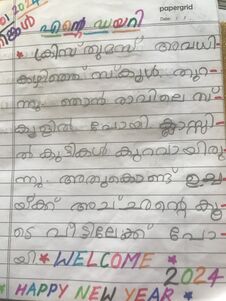 papergrid
Date: / /
എന്റെ ഡയറി
* ക്രിസ്തുമസ് അവധി-
കഴിഞ്ഞ് സ്കൂൾ തുറ-
ന്നു ഞാൻ രാവിലെ സ്-
കൂളിൽ പോയി ക്ലാസ്സി-
ൽ കുട്ടികൾ കുറവായിരു-
ന്നു അതുകൊണ്ട് ഉച്ച-
യ്ക്ക് അച്ചന്റെ കൂ-
ടെ വീട്ടിലേക്ക് പോ-
യി * WELCOME *
2024
HAPPY NEW YEAR *